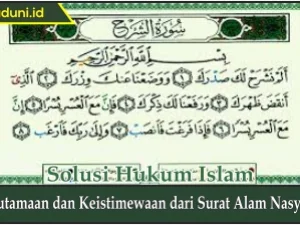 duni.id
سُورَةُ الشَّرْحِ
بِسْمِ اللَّهِ الرَّحْمَٰنِ الرَّحِيمِ
أَلَمْ نَشْرَحْ لَكَ صَدْرَكَ ١ وَوَضَعْنَا عَنكَ وِزْرَكَ ٢ الَّذِي
أَنقَضَ ظَهْرَكَ ٣ وَرَفَعْنَا لَكَ ذِكْرَكَ ٤ فَإِنَّ مَعَ الْعُسْرِ يُسْرًا ٥ إِنَّ
مَعَ الْعُسْرِ يُسْرًا ٦ فَإِذَا فَرَغْتَ فَانصَبْ ٧ وَإِلَىٰ رَبِّكَ فَارْغَب ٨
Solusi Hukum Islam
utamaan dan Keistimewaan dari Surat Alam Nasy